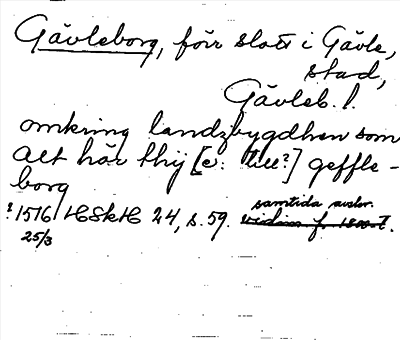 Gävleborg, förr slott i Gävle,
stad,
Gävleb. l.
omkring landzbygdhen som
alt här thij [ɔ: till?] geffle-
borg
? 1516 HSkH 24, s. 59. samtida avskr.
25/3